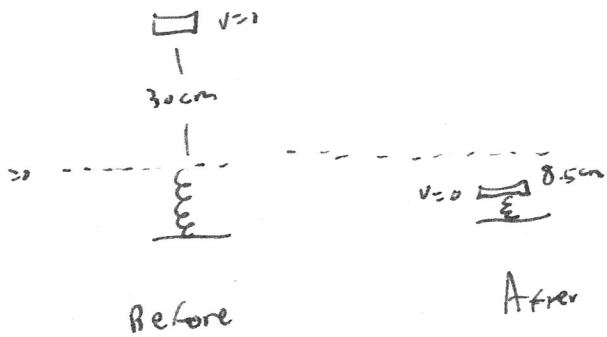 v=0
30cm
=0
8.5cm
v=0
Before
After